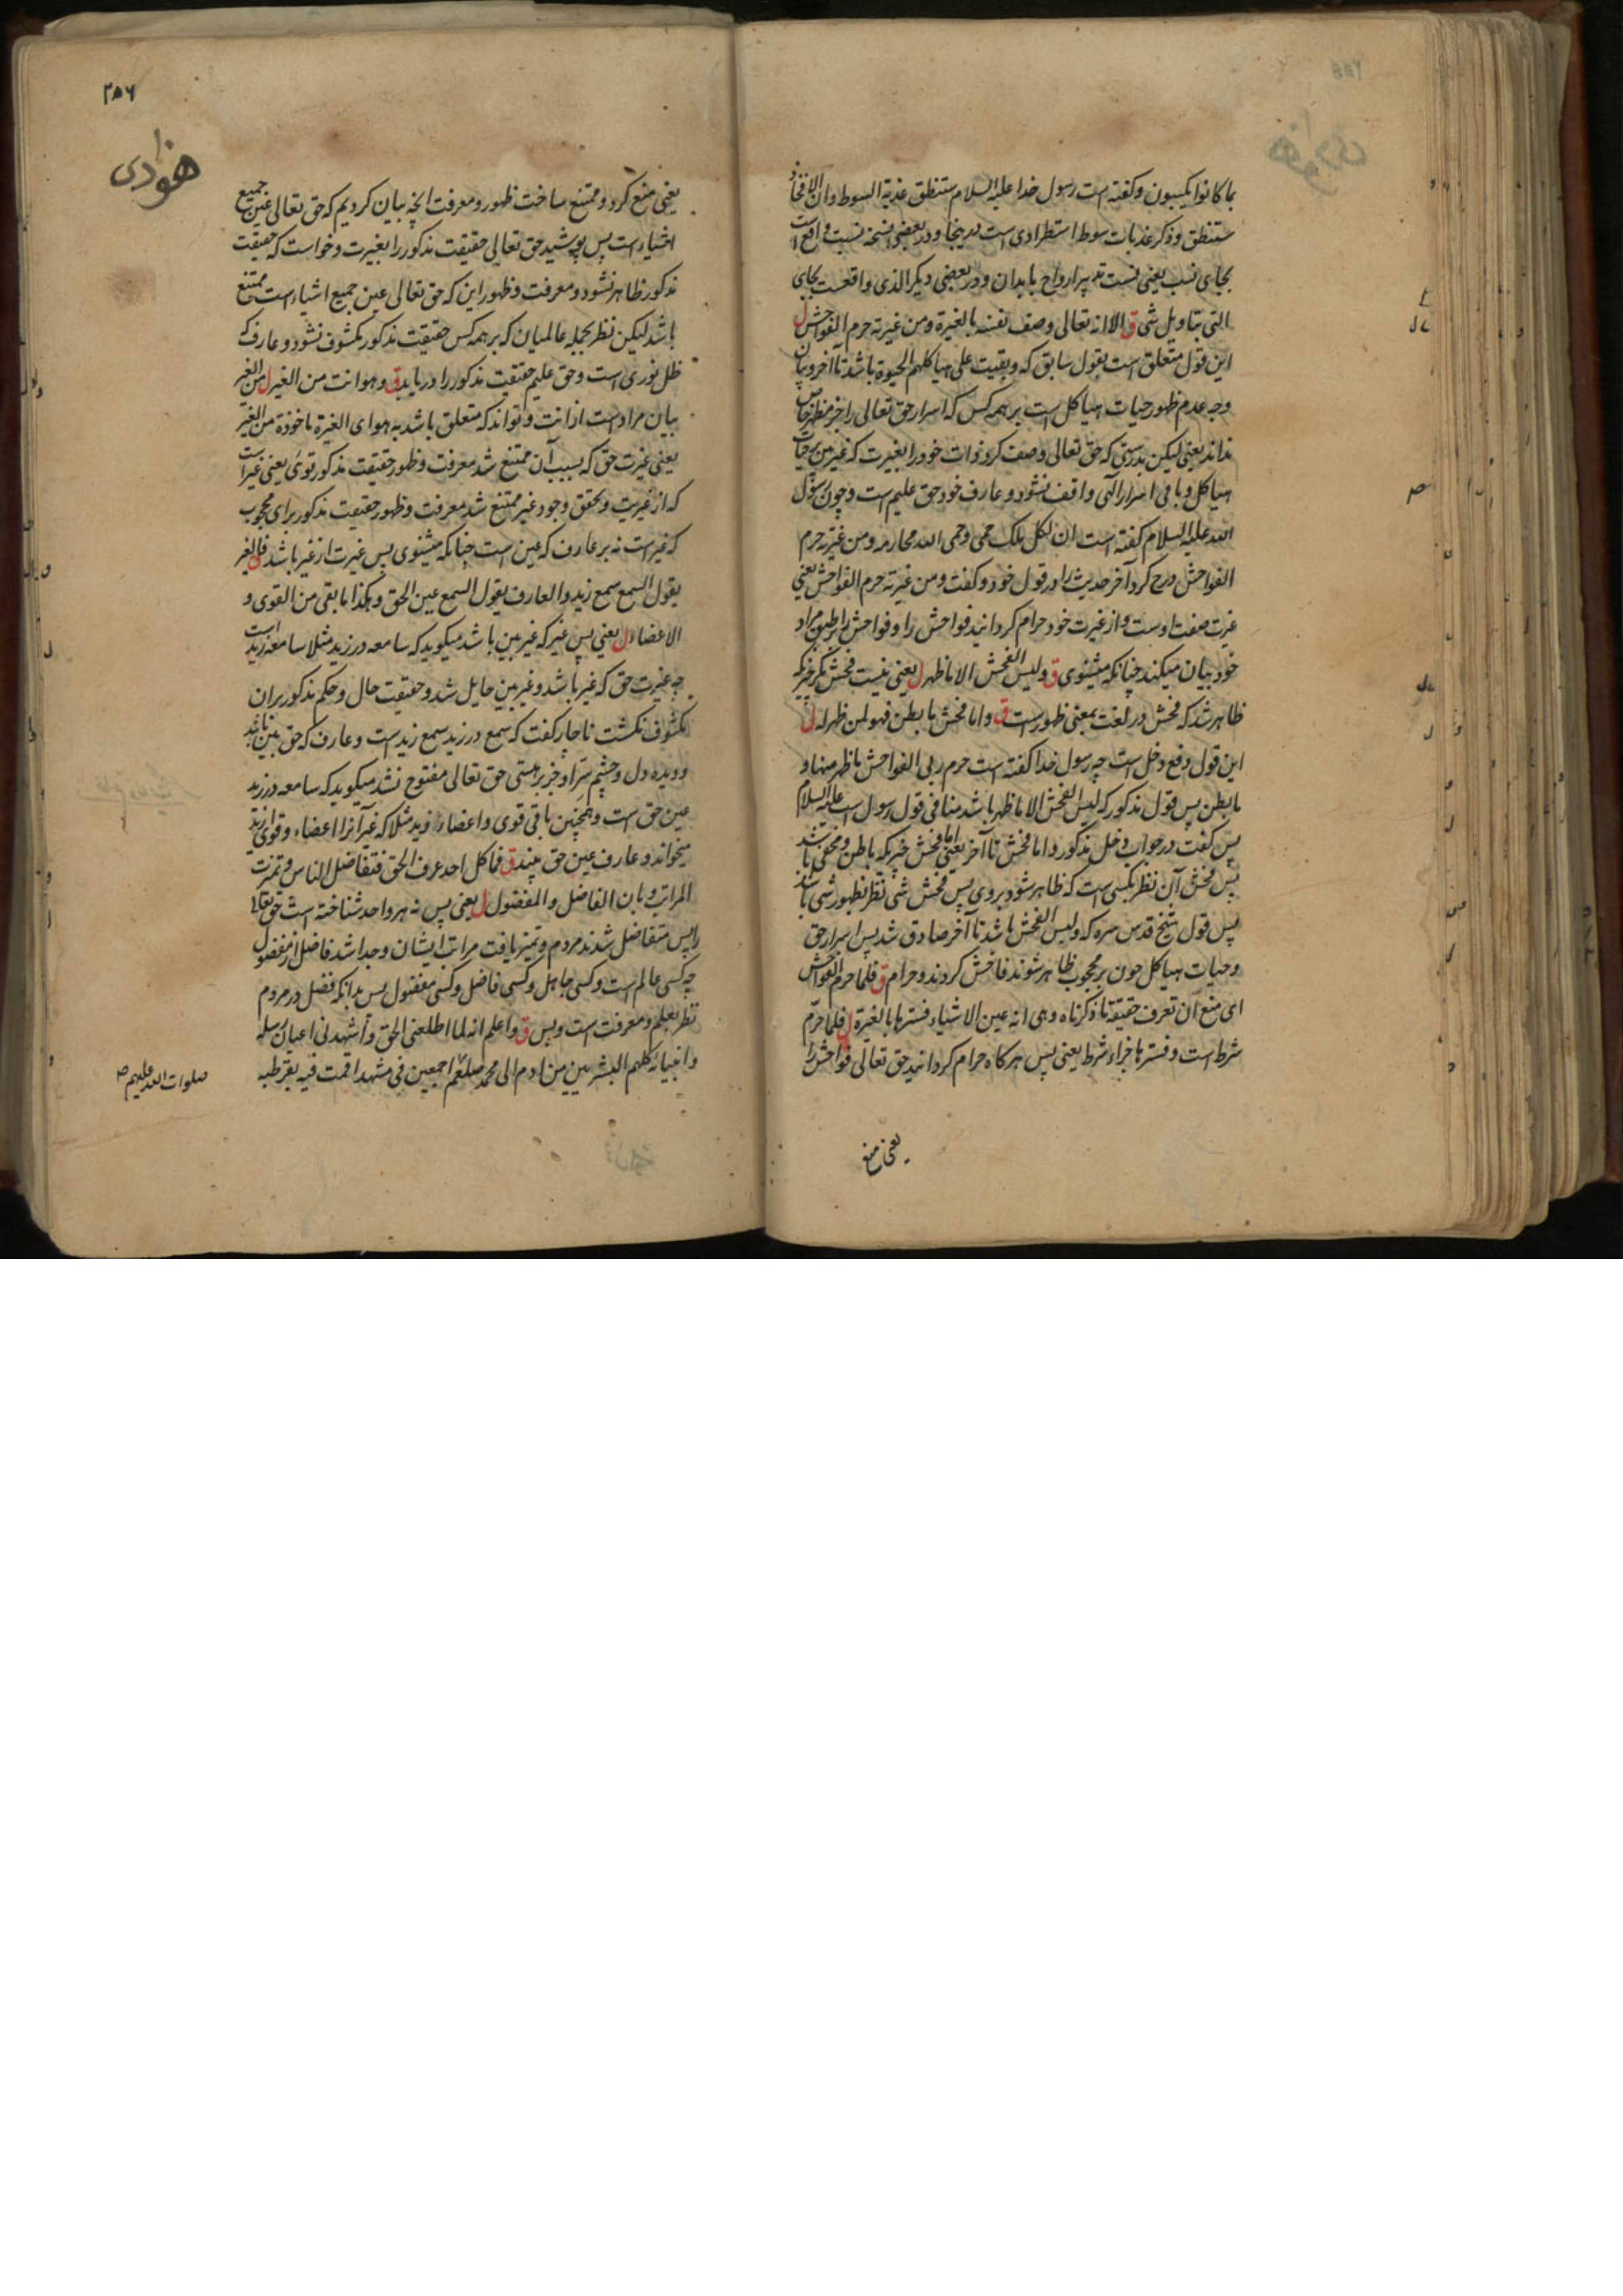 بما کانوا یکسبون و کفته است رسول خدا علیه السلام ستنطق عذبة السوط و ان الافخاذ
ستنطق و ذکر عذبات سوط استطرادی است در ینجا و در بعضی نسخه نسبت واقع است
بجای نسب یعنی نسبت تدبیر ارواح بابدان و در بعضی دیکر الذی واقعست بجای
التی بتاویل شی ق الا انه تعالی وصف نفسه بالغیرة و من غیرته حرم الفواحش ل
این قول متعلق است بقول سابق که و بقیت علی هیاکلهم الحیوة باشد تا آخر و بیان
وجه عدم ظهور حیات هیاکل است بر همه کس که اسرار حق تعالی را جز مظهر خاص
نداند یعنی لیکن بدرستی که حق تعالی وصف کرد ذات خود را بغیرت که غیر من بر حیات
هیاکل و باقی اسرار الهی واقف نشود و عارف خود حق علیم است و چون رسول
الله علیه السلام کفته است ان لکل ملک حمی و حمی الله محارمه و من غیرته حرم
الفواحش درج کرد آخر حدیث را در قول خود و کفت و من غیرته حرم الفواحش یعنی
غیرت صفت اوست و از غیرت خود حرام کردانید فواحش را و فواحش را بطبق مراد
خود بیان میکند چنانکه میشنوی ق و لیس الفحش الا ما ظهر ل یعنی نیست فحش مکر چیزیکه
ظاهر شد که فحش در لغت بمعنی ظهور است ق و اما فحش ما بطن فهو لمن ظهر له ل
این قول دفع دخل است چه رسول خدا کفته است حرم ربی الفواحش ما ظهر منها و
ما بطن پس قول مذکور که لیس الفحش الا ما ظهر باشد منافی قول رسول است علیه السلام
پس کفت در جواب دخل مذکور و اما فحش تا آخر یعنی اما فحش چیزیکه باطن و مخفی باشد
پس فحش آن نظر بکسی است که ظاهر شود بروی پس فحش شی نظر بظهور شی باشد
پس قول شیخ قدس سره که و لیس الفحش باشد تا آخر صادق شد پس اسرار حق
و حیات هیاکل چون بر محجوب ظاهر شوند فاحش کردند و حرام ق فلما حرم الفواحش
ای منع ان تعرف حقیقة ما ذکرناه و هی انه عین الاشیاء فسترها بالغیرة ل فلما حرم
شرط است و فسترها جزاء شرط یعنی پس هرکاه حرام کردانید حق تعالی فواحش را
یعنی منع
۲۵۶
هودی
یعنی منع کرد و ممتنع ساخت ظهور و معرفت انچه بیان کردیم که حق تعالی عین جمیع
اشیاء است پس پوشید حق تعالی حقیقت مذکور را بغیرت و خواست که حقیقت
مذکور ظاهر نشود و معرفت و ظهور این که حق تعالی عین جمیع اشیاء است ممتنع
باشد لیکن نظر بجمله عالمیان که بر همه کس حقیقت مذکور مکشوف نشود و عارف که
ظل نوری است و حق علیم حقیقت مذکور را دریابد ق و هو انت من الغیر ل من الغیر
بیان مراد است از انت و تواند که متعلق باشد به هو ای الغیرة ماخوذة من الغیر
یعنی غیرت حق که بسبب آن ممتنع شد معرفت و ظهور حقیقت مذکور توئی یعنی غیر است
که از غیریت و تحقق وجود غیر ممتنع شد معرفت و ظهور حقیقت مذکور برای محجوب
که غیر است نه بر عارف که عین است چنانکه میشنوی پس غیرت از غیر باشد فالغیر
یقول السمع سمع زید و العارف یقول السمع عین الحق و هکذا ما بقی من القوی و
الاعضاء ل یعنی پس غیر که غیر بین باشد میکوید که سامعه در زید مثلا سامعه زید است
چه غیرت حق که غیر باشد و غیر بین حایل شد و حقیقت حال و حکم مذکور بران
مکشوف نکشت ناچار کفت که سمع در زید سمع زید است و عارف که حق بین باشد
و دیده دل و چشم سر او جز بر هستی حق تعالی مفتوح نشد میکوید که سامعه در زید
عین حق است و همچنین باقی قوی و اعضاء زید مثلا که غیر آنرا اعضاء و قوای زید
میخواند و عارف عین حق بیند ق فما کل احد عرف الحق فتفاضل الناس و تمیزت
المراتب و بان الفاضل و المفضول ل یعنی پس نه هر واحد شناخته است حق تعالی
را پس متفاضل شدند مردم و تمیز یافت مراتب ایشان و جدا شد فاضل از مفضول
چه کسی عالم است و کسی جاهل و کسی فاضل و کسی مفضول پس بدانکه فضل در مردم
نظر بعلم و معرفت است و بس ق و اعلم انه لما اطلعنی الحق و اشهدنی اعیان رسله
و انبیائه کلهم البشریین من ادم الی محمد صلعم اجمعین فی مشهد اقمت فیه بقرطبه
صلوات الله علیهم صح